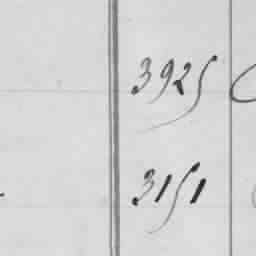 3925
3151